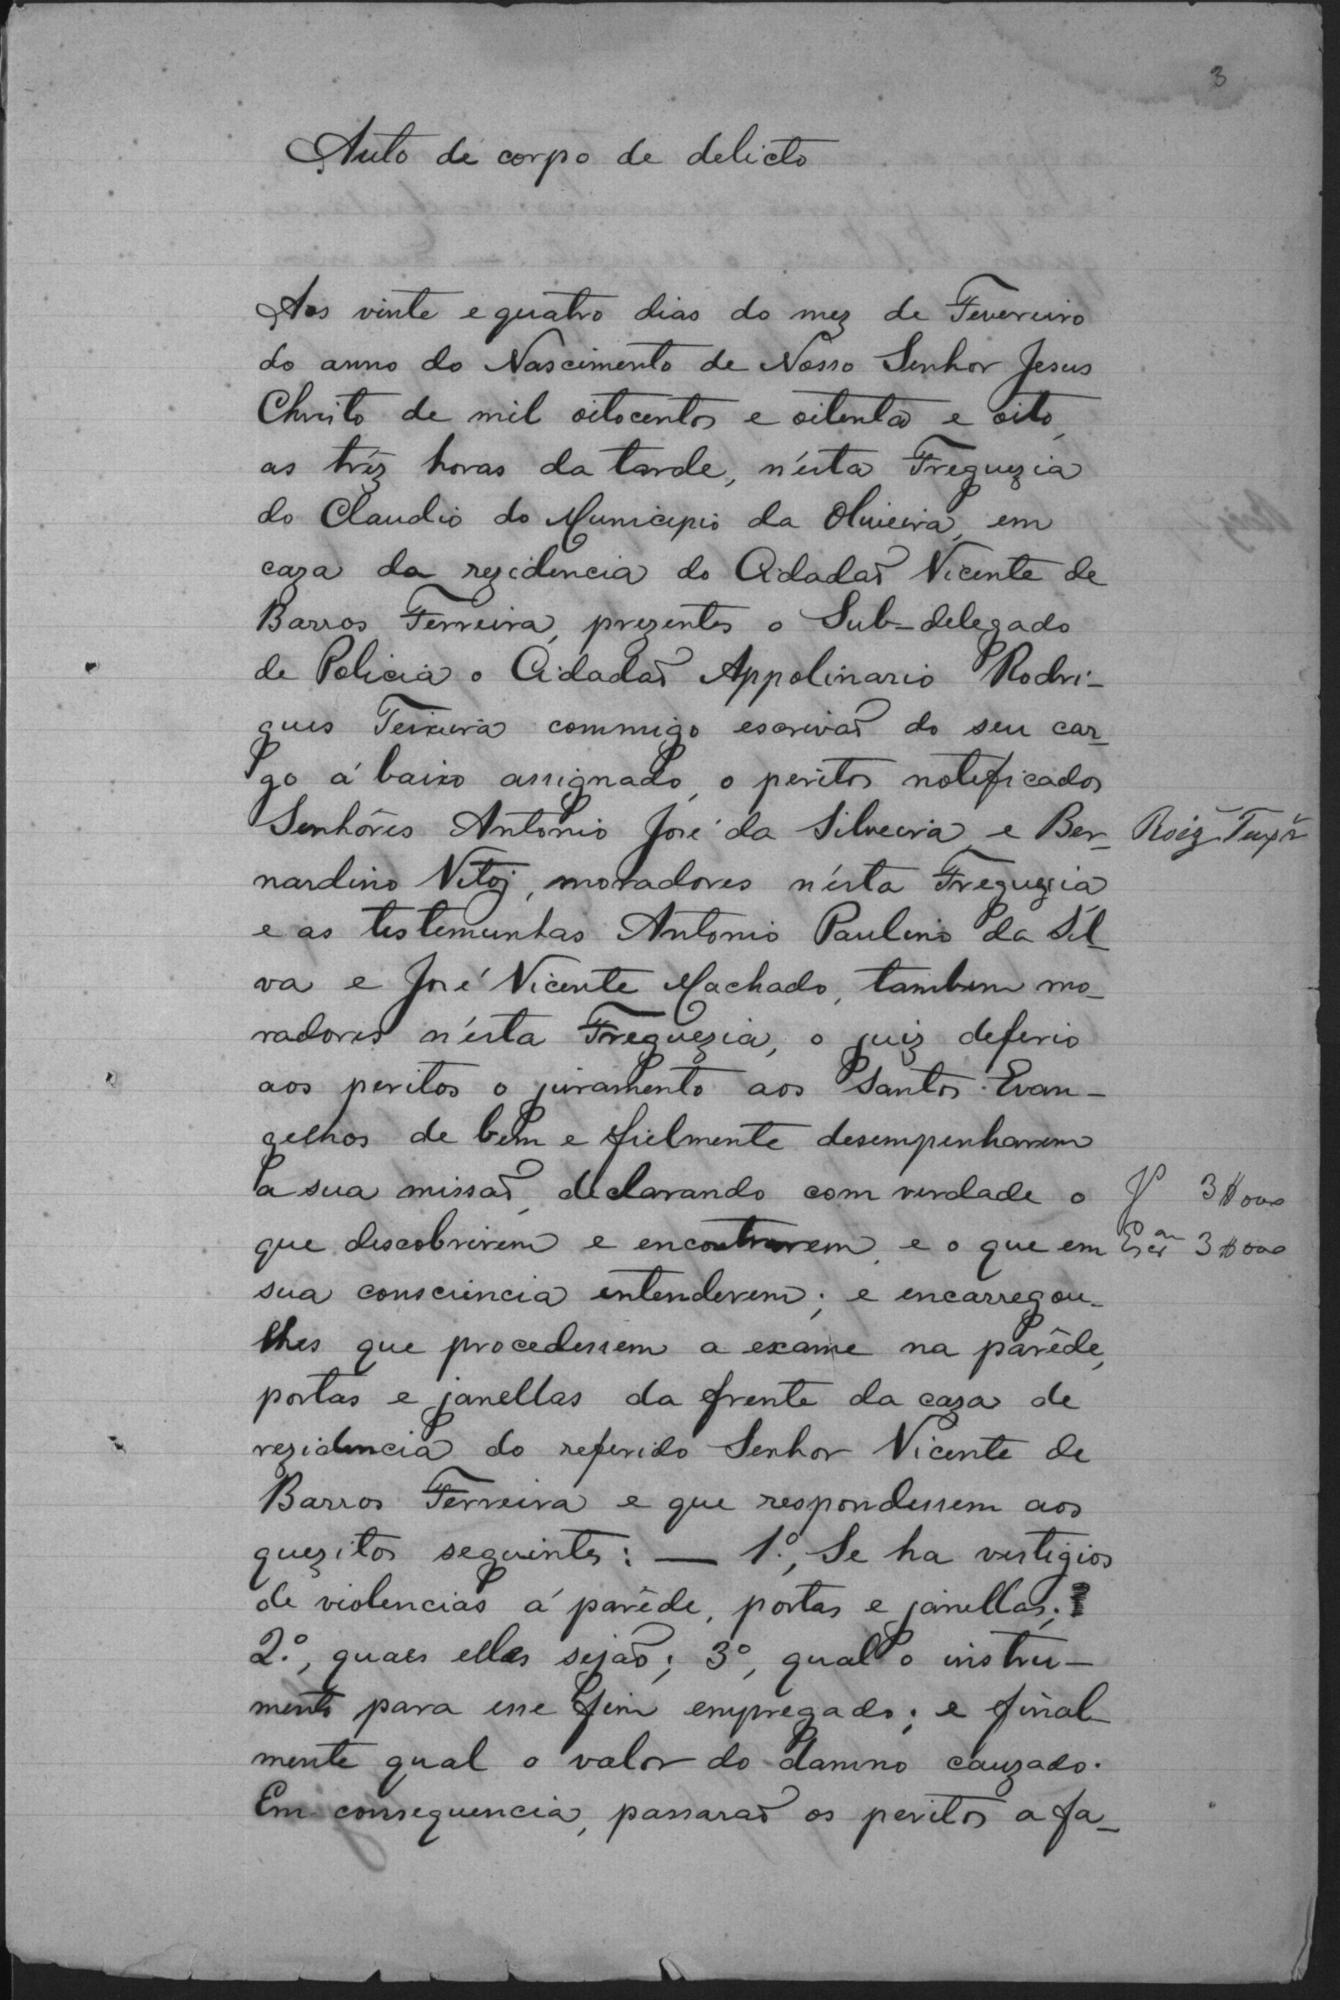 3
Auto de corpo de delicto
Aos vinte e quatro dias do mez de Fevereiro
do anno do Nascimento de Nosso Senhor Jesus
Christo de mil oitocentos e oitenta e oito,
as tréz horas da tarde, n'ésta Freguezia
do Claudio do Municipio da Oliveira, em
caza da rezidencia do Cidadaõ Vicente de
Barros Ferreira, prezentes o Sub-delegado
de Policia o Cidadaõ Appolinario Rodri-
gues Teixeira commigo escrivaõ do seu car-
go á baixo assignado, o peritos notificados
Senhôres Antonio José da Silveira e Ber- Roiz Teixrª
nardino, moradores n'ésta Freguezia
e as testemunhas Antonio Paulino da Sil-
va e José Vicente Machado, tambem mo-
radores n'ésta Freguezia, o juiz deferio
aos peritos o juramento aos Santos Evan-
gelhos de bem e fielmente desempenharem
a sua missaõ, declarando com verdade o J 3$000
que descobrirem e encontrarem, e o que em Escam 3$000
sua consciencia entenderem; e encarregou-
lhes que procedessem a exame na parêde,
portas e janellas da frente da caza de
rezidencia do referido Senhor Vicente de
Barros Ferreira e que respondessem aos
quezitos seguintes: — 1.º, Se ha vestigios
de violencias á parêde, portas e janellas;
2.º, quaes elles sejaõ; 3º, qual o instru-
mento para esse fim empregado; e final-
mente qual o valor do damno cauzado.
Em consequencia, passaraõ os peritos a fa-